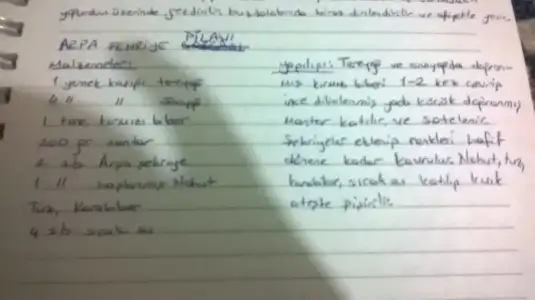 üzerinde gezdirilir buzdolabında biraz dinlendirilir ve afiyetle yenir.
ARPA ŞEHRİYE PİLAVI
Malzemeler:
1 yemek kaşığı tereyağ
4 " "
1 tane kırmızı biber
200 gr mantar
2 s/b Arpa şehriye
1 " haşlanmış Nohut
Tuz, Karabiber
4 s/b sıcak su
yapılışı: Tereyağ ve sıvıyağda doğranmış
kırmızı biberi 1-2 kez çevirip
ince dilimlenmiş yada küçük doğranmış
Mantar katılır ve sotelenir.
Şehriyeler eklenip renkleri hafif
dönene kadar kavrulur. Nohut, tuz,
karabiber, sıcak su katılıp kısık
ateşte pişirilir